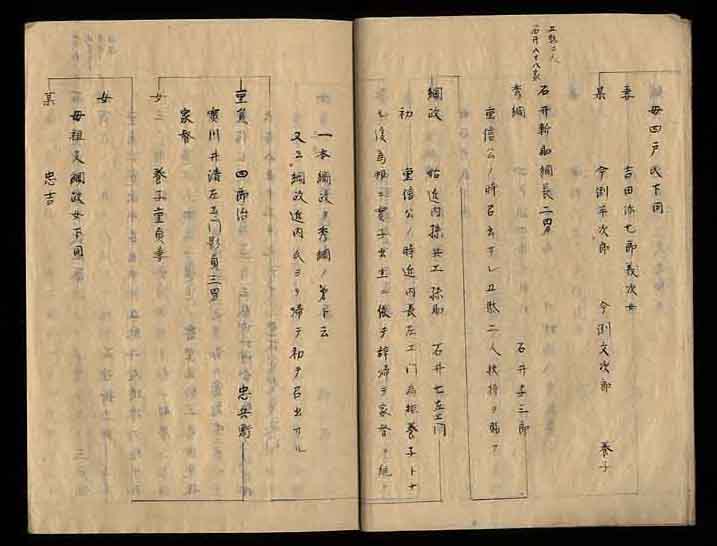 母四戸氏下同
妻 吉田添七郎義次女
某 今渕平次郎 今渕文次郎 養子
五駄二人
石井新助綱長二男
秀綱 石井李三郎
重信公ノ時召出サレ五駄二人扶持ヲ賜フ
綱政 始近内孫兵エ孫助 石井七左エ門
初 重信公ノ時近内長左エ門為根養子トナ
ル後為根ニ実子出生ニ依テ辞帰テ家督ヲ継
一本綱政ヲ秀綱ノ弟ト云
又云綱政近内氏ヨリ帰テ初テ召出サル
重貞 四郎治 忠兵衛
実川井清左エ門影貞三男
家督
女 養子重貞妻
女
母祖父綱政女下同
某 忠吉